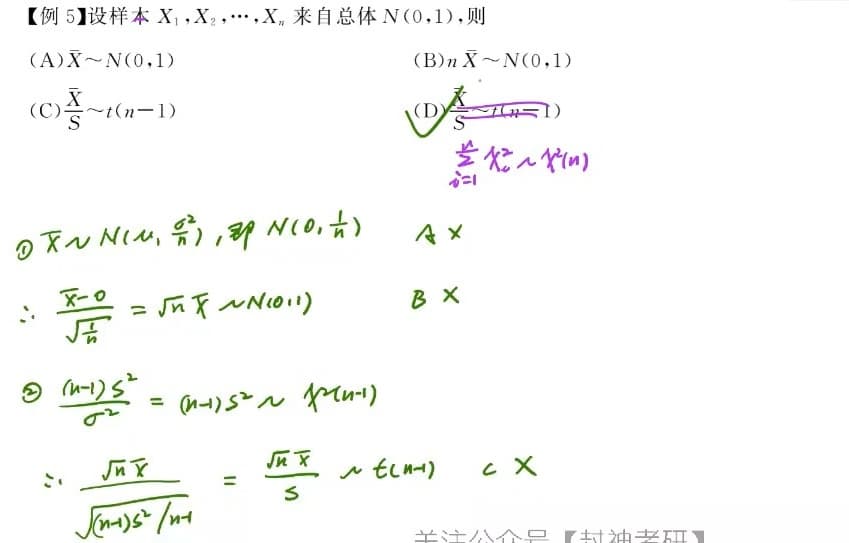 【例 5】设样本 X₁,X₂,⋯,Xₙ 来自总体 N(0,1),则
(A) X̄~N(0,1) (B) n X̄~N(0,1)
(C) X̄/S~t(n−1) (D) X̄/S~t(n−1)
∑ᵢ₌₁ⁿ Xᵢ² ~ χ²(n)
① X̄ ~ N(μ, σ²/n), 即 N(0, 1/n) A ×
∴ (X̄−0)/√(1/n) = √n X̄ ~ N(0,1) B ×
② (n-1)S²/σ² = (n-1)S² ~ χ²(n-1)
∴ √n X̄/√((n-1)S²/n-1) = √n X̄/S ~ t(n-1) C ×
关注公众号【封神考研】